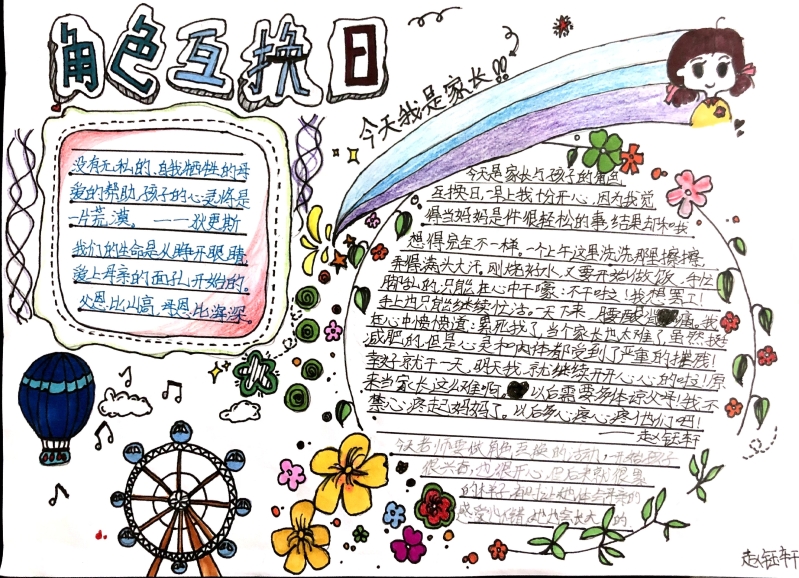 角色互换日
今天我是家长!!
没有无私的、自我牺牲的母
爱的帮助,孩子的心灵将是
一片荒漠。 ——狄更斯
我们的生命是从睁开眼睛,
爱上母亲的面孔开始的。
父恩比山高,母恩比海深。
今天是家长与孩子的角色
互换日,早上我十分开心,因为我觉
得当妈妈是件很轻松的事,结果却和我
想得完全不一样。一个上午这里洗洗那里擦擦,
弄得满头大汗。刚烧好水,又要开始做饭,手忙
脚乱的,只能在心中干嚎:不干啦!我想罢工!
手上也只能继续忙活。一天下来,腰酸 痛。我
在心中愤愤道:累死我了,当个家长也太难了,虽然挺
减肥的,但是心灵和肉体都受到了严重的摧残!
幸好就干一天,明天我就继续开开心心的啦!原
来当家长这么难啊。 以后需要多体谅父母!我不
禁心疼起妈妈了。以后多心疼心疼他们吧!
——赵钰轩
今天老师要做角色互换的活动,开始孩子
很兴奋,也很开心,但后来就很累
的样子,
感受
赵钰轩